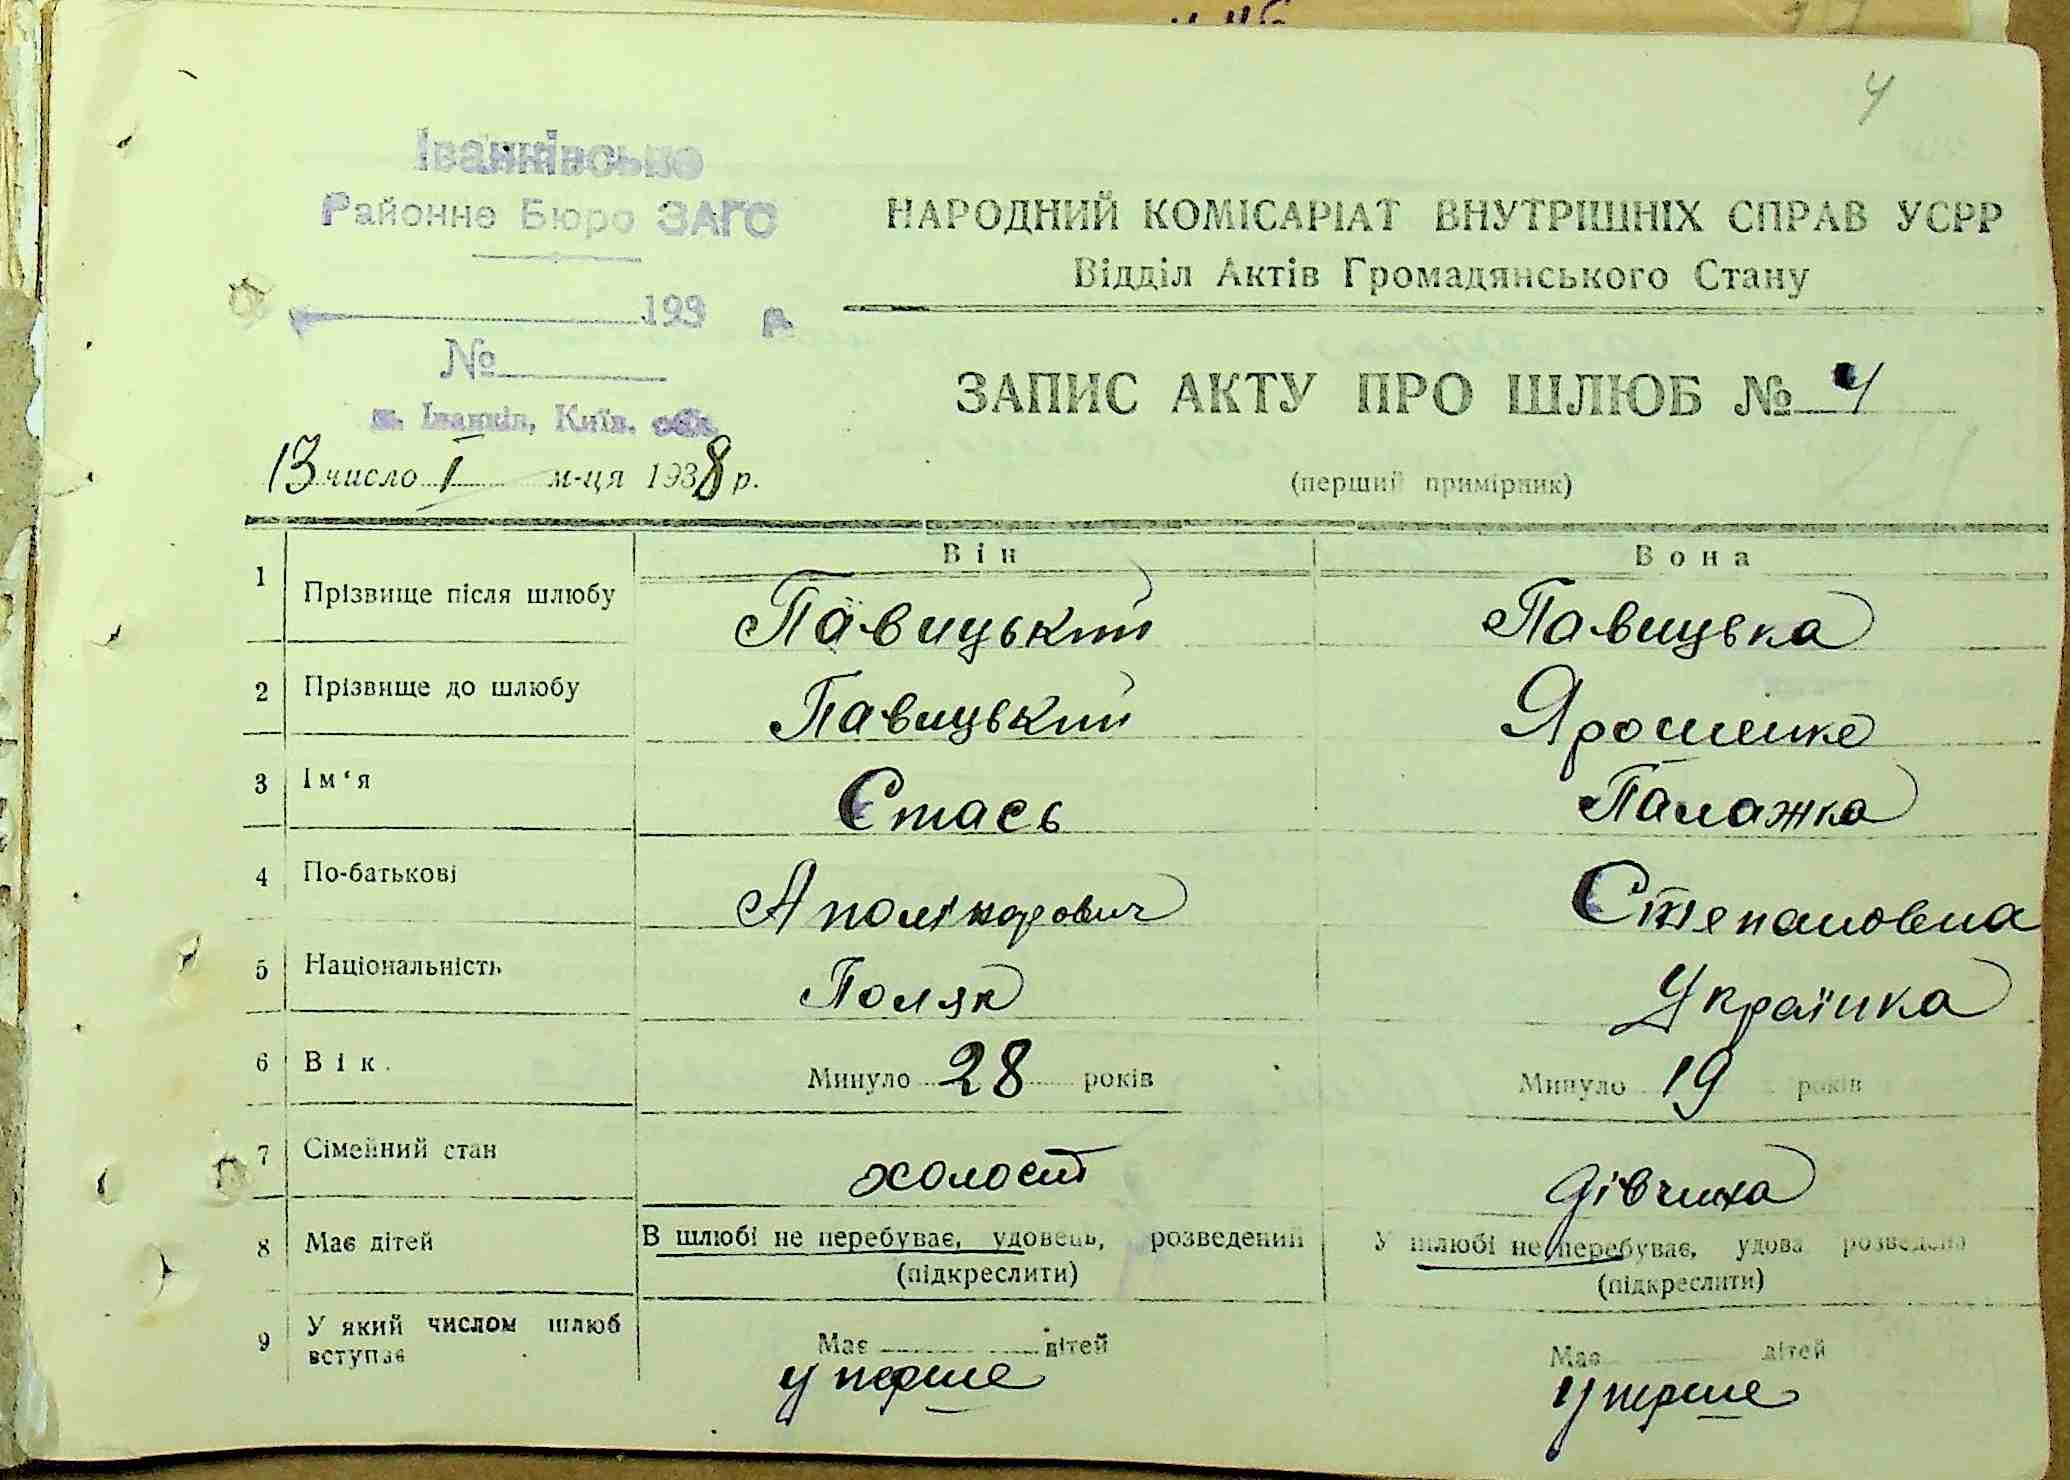 4
Іванківське
Районне Бюро ЗАГС
193 р.
№
м. Іванків, Київ. обл.
НАРОДНИЙ КОМІСАРІАТ ВНУТРІШНІХ СПРАВ УСРР
Відділ Актів Громадянського Стану
ЗАПИС АКТУ ПРО ШЛЮБ № 4
13 число I м-ця 1938 р.
(перший примірник)
Він Вона
1 Прізвище після шлюбу Павицький Павицька
2 Прізвище до шлюбу Павицький Ярошенко
3 Ім‘я Стась Палажка
4 По-батькові Аполінарович Степановна
5 Національність Поляк Українка
6 Вік. Минуло 28 років Минуло 19 років
7 Сімейний стан холост дівчина
8 Має дітей В шлюбі не перебуває, удовець, розведений У шлюбі не перебуває, удова розведена
(підкреслити) (підкреслити)
9 У який числом шлюб вступає Має дітей Має дітей
уперше уперше